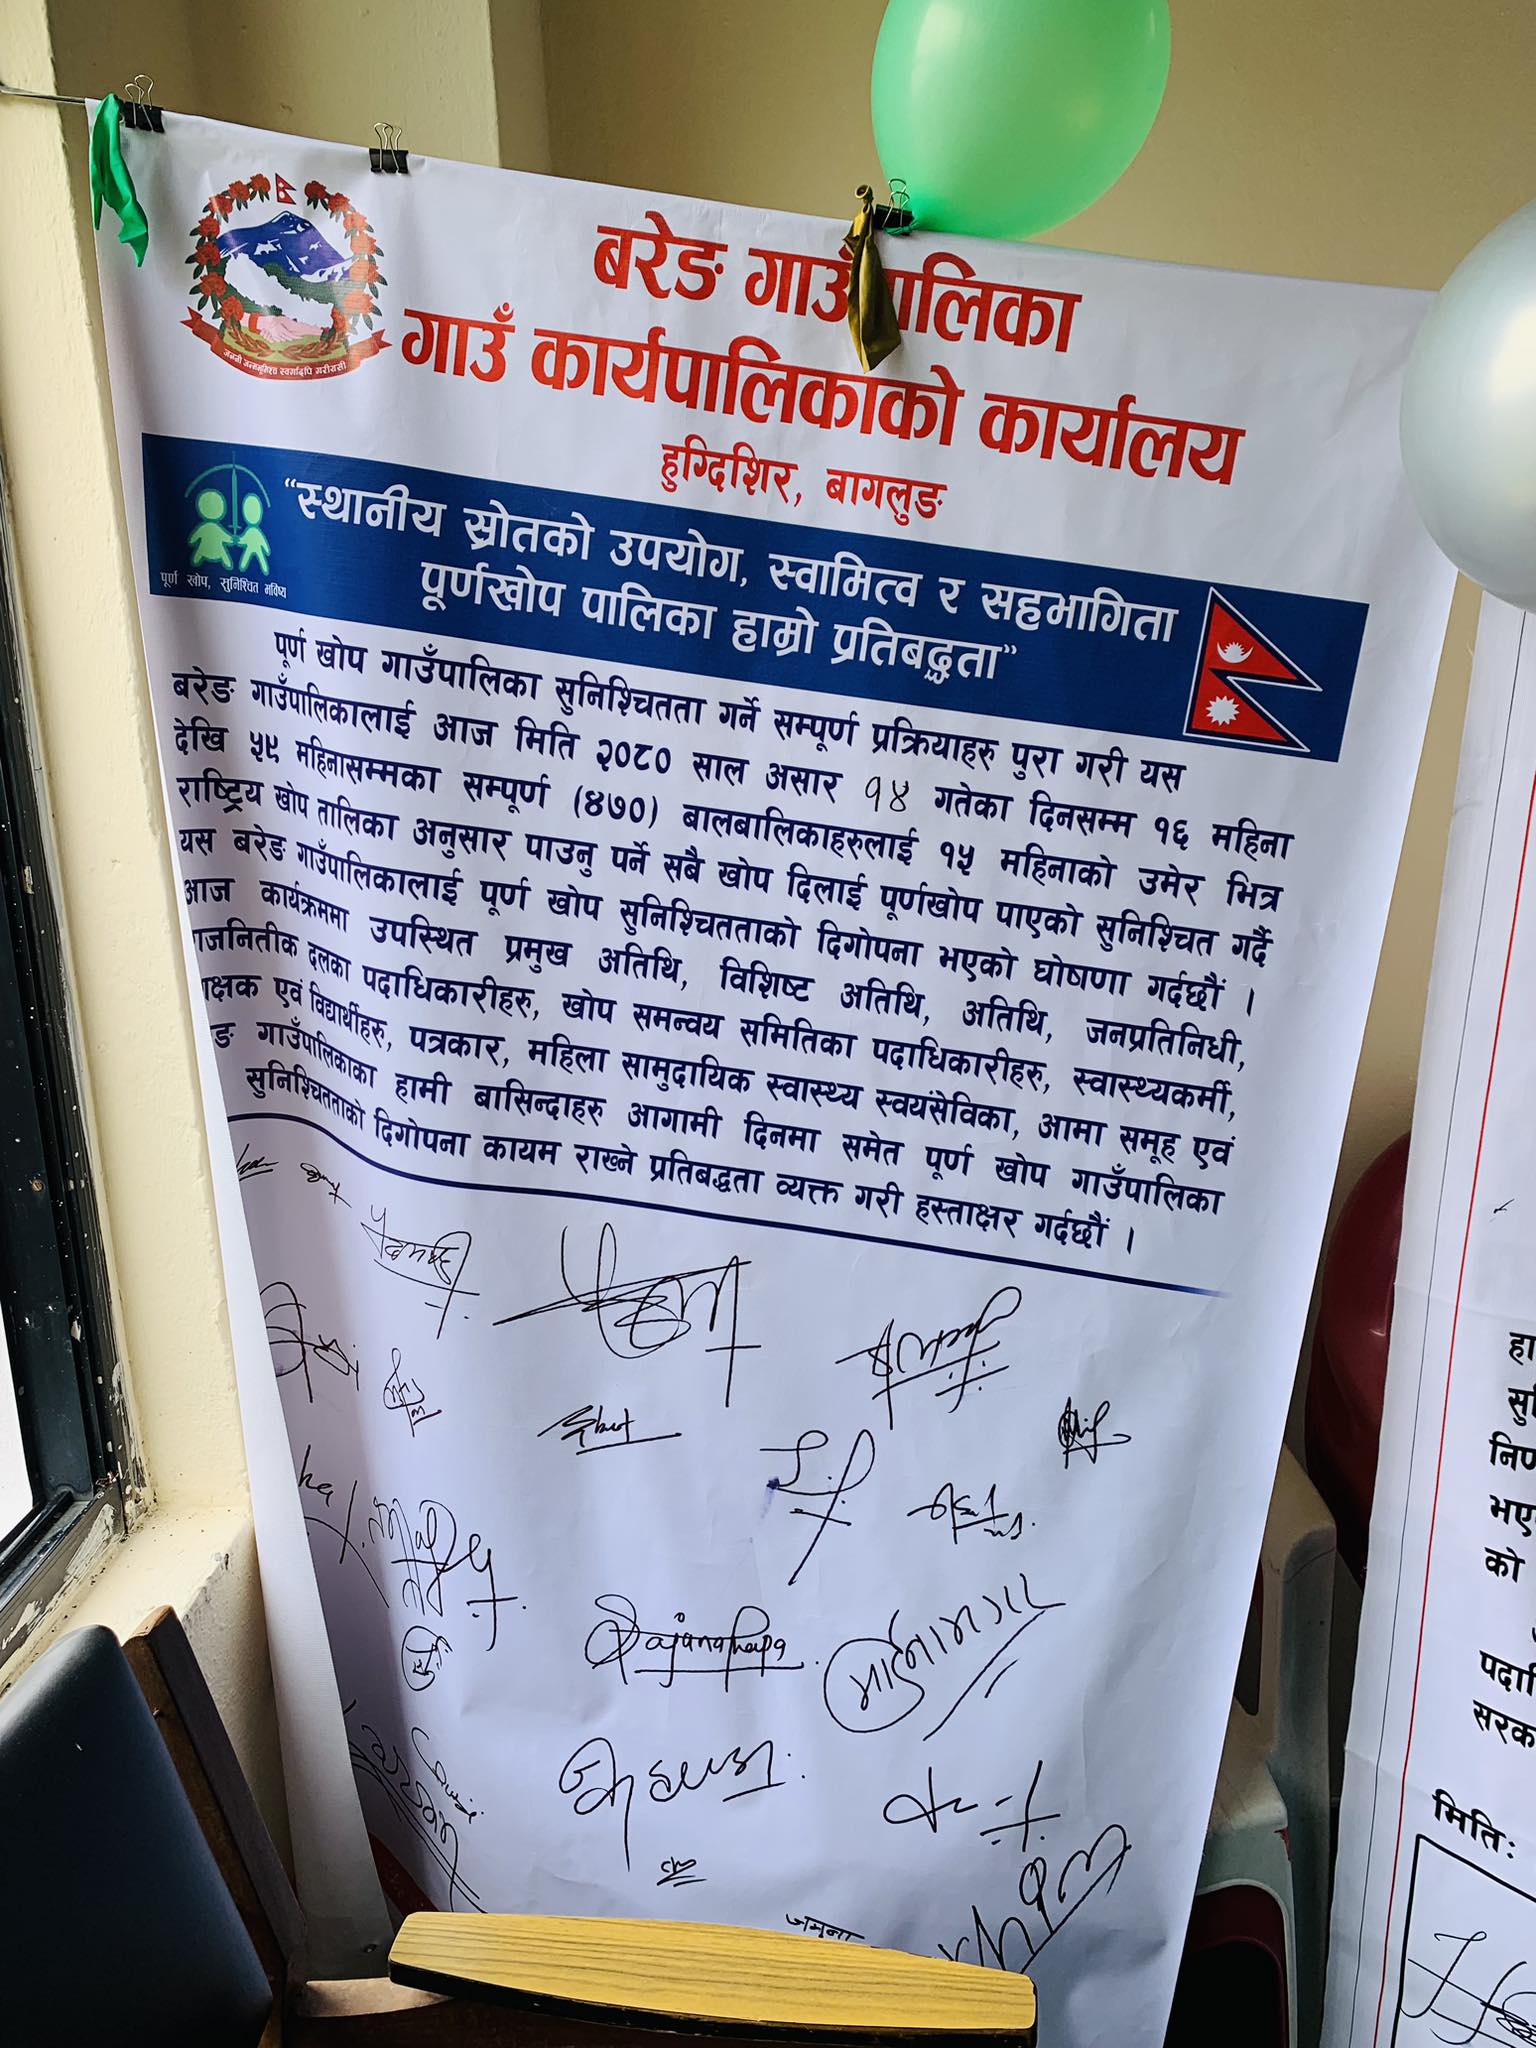 बरेङ गाउँपालिका
गाउँ कार्यपालिकाको कार्यालय
हुग्दिशिर, बागलुङ
जननी जन्मभूमिश्च स्वर्गादपि गरीयसी
पूर्ण खोप, सुनिश्चित भविष्य
“स्थानीय स्रोतको उपयोग, स्वामित्व र सहभागिता
पूर्णखोप पालिका हाम्रो प्रतिबद्धता”
पूर्ण खोप गाउँपालिका सुनिश्चितता गर्ने सम्पूर्ण प्रक्रियाहरु पुरा गरी यस
बरेङ गाउँपालिकालाई आज मिति २०८० साल असार १४ गतेका दिनसम्म १६ महिना
देखि ५९ महिनासम्मका सम्पूर्ण (४७०) बालबालिकाहरुलाई १५ महिनाको उमेर भित्र
राष्ट्रिय खोप तालिका अनुसार पाउनु पर्ने सबै खोप दिलाई पूर्णखोप पाएको सुनिश्चित गर्दै
यस बरेङ गाउँपालिकालाई पूर्ण खोप सुनिश्चितताको दिगोपना भएको घोषणा गर्दछौं ।
आज कार्यक्रममा उपस्थित प्रमुख अतिथि, विशिष्ट अतिथि, अतिथि, जनप्रतिनिधी,
ाजनितीक दलका पदाधिकारीहरु, खोप समन्वय समितिका पदाधिकारीहरु, स्वास्थ्यकर्मी,
क्षक एवं विद्यार्थीहरु, पत्रकार, महिला सामुदायिक स्वास्थ्य स्वयंसेविका, आमा समूह एवं
ङ गाउँपालिकाका हामी बासिन्दाहरु आगामी दिनमा समेत पूर्ण खोप गाउँपालिका
सुनिश्चितताको दिगोपना कायम राख्ने प्रतिबद्धता व्यक्त गरी हस्ताक्षर गर्दछौं ।
जमुना
हा
सु
निण
भए
को
पदा
सरक
मिति: